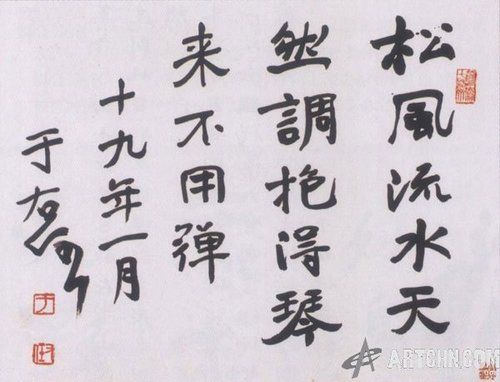 松風流水天
然調抱得琴
来不用弹
十九年一月
于右任
ARTCHN.COM